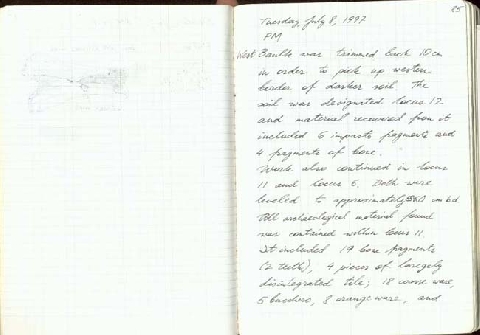 85
Tuesday, July 8, 1997
PM
West Baulk was trimmed back 10 cm
in order to pick up western
border of darker soil. The
soil was designated locus 17
and material recovered from it
included 6 impasto fragments and
4 fragments of bone.
Work also continued in locus
11 and locus 5. Both were
leveled to approximately
All archaeological material found
was contained within locus 11.
It included 19 bone fragments
(2 teeth), 4 pieces of largely
disintegrated tile; 18 coarse ware,
5 bucchero, 8 orange ware, and